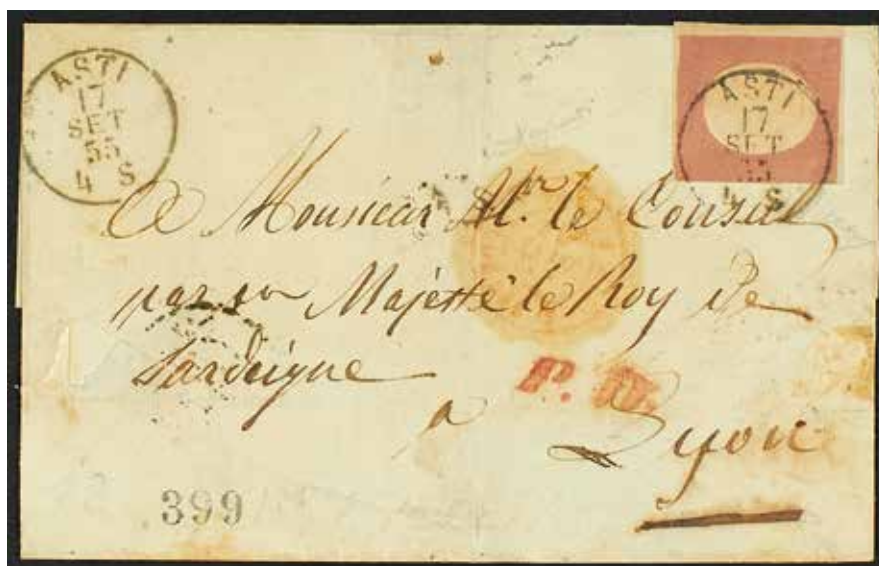 ASTI
17
SET
55
4 S
ASTI
17
SET
55
4 S
A Monsieur Mr. le Consul
par sa Majesté le Roy de
Sardeigne
P. D.
a Lyon
399